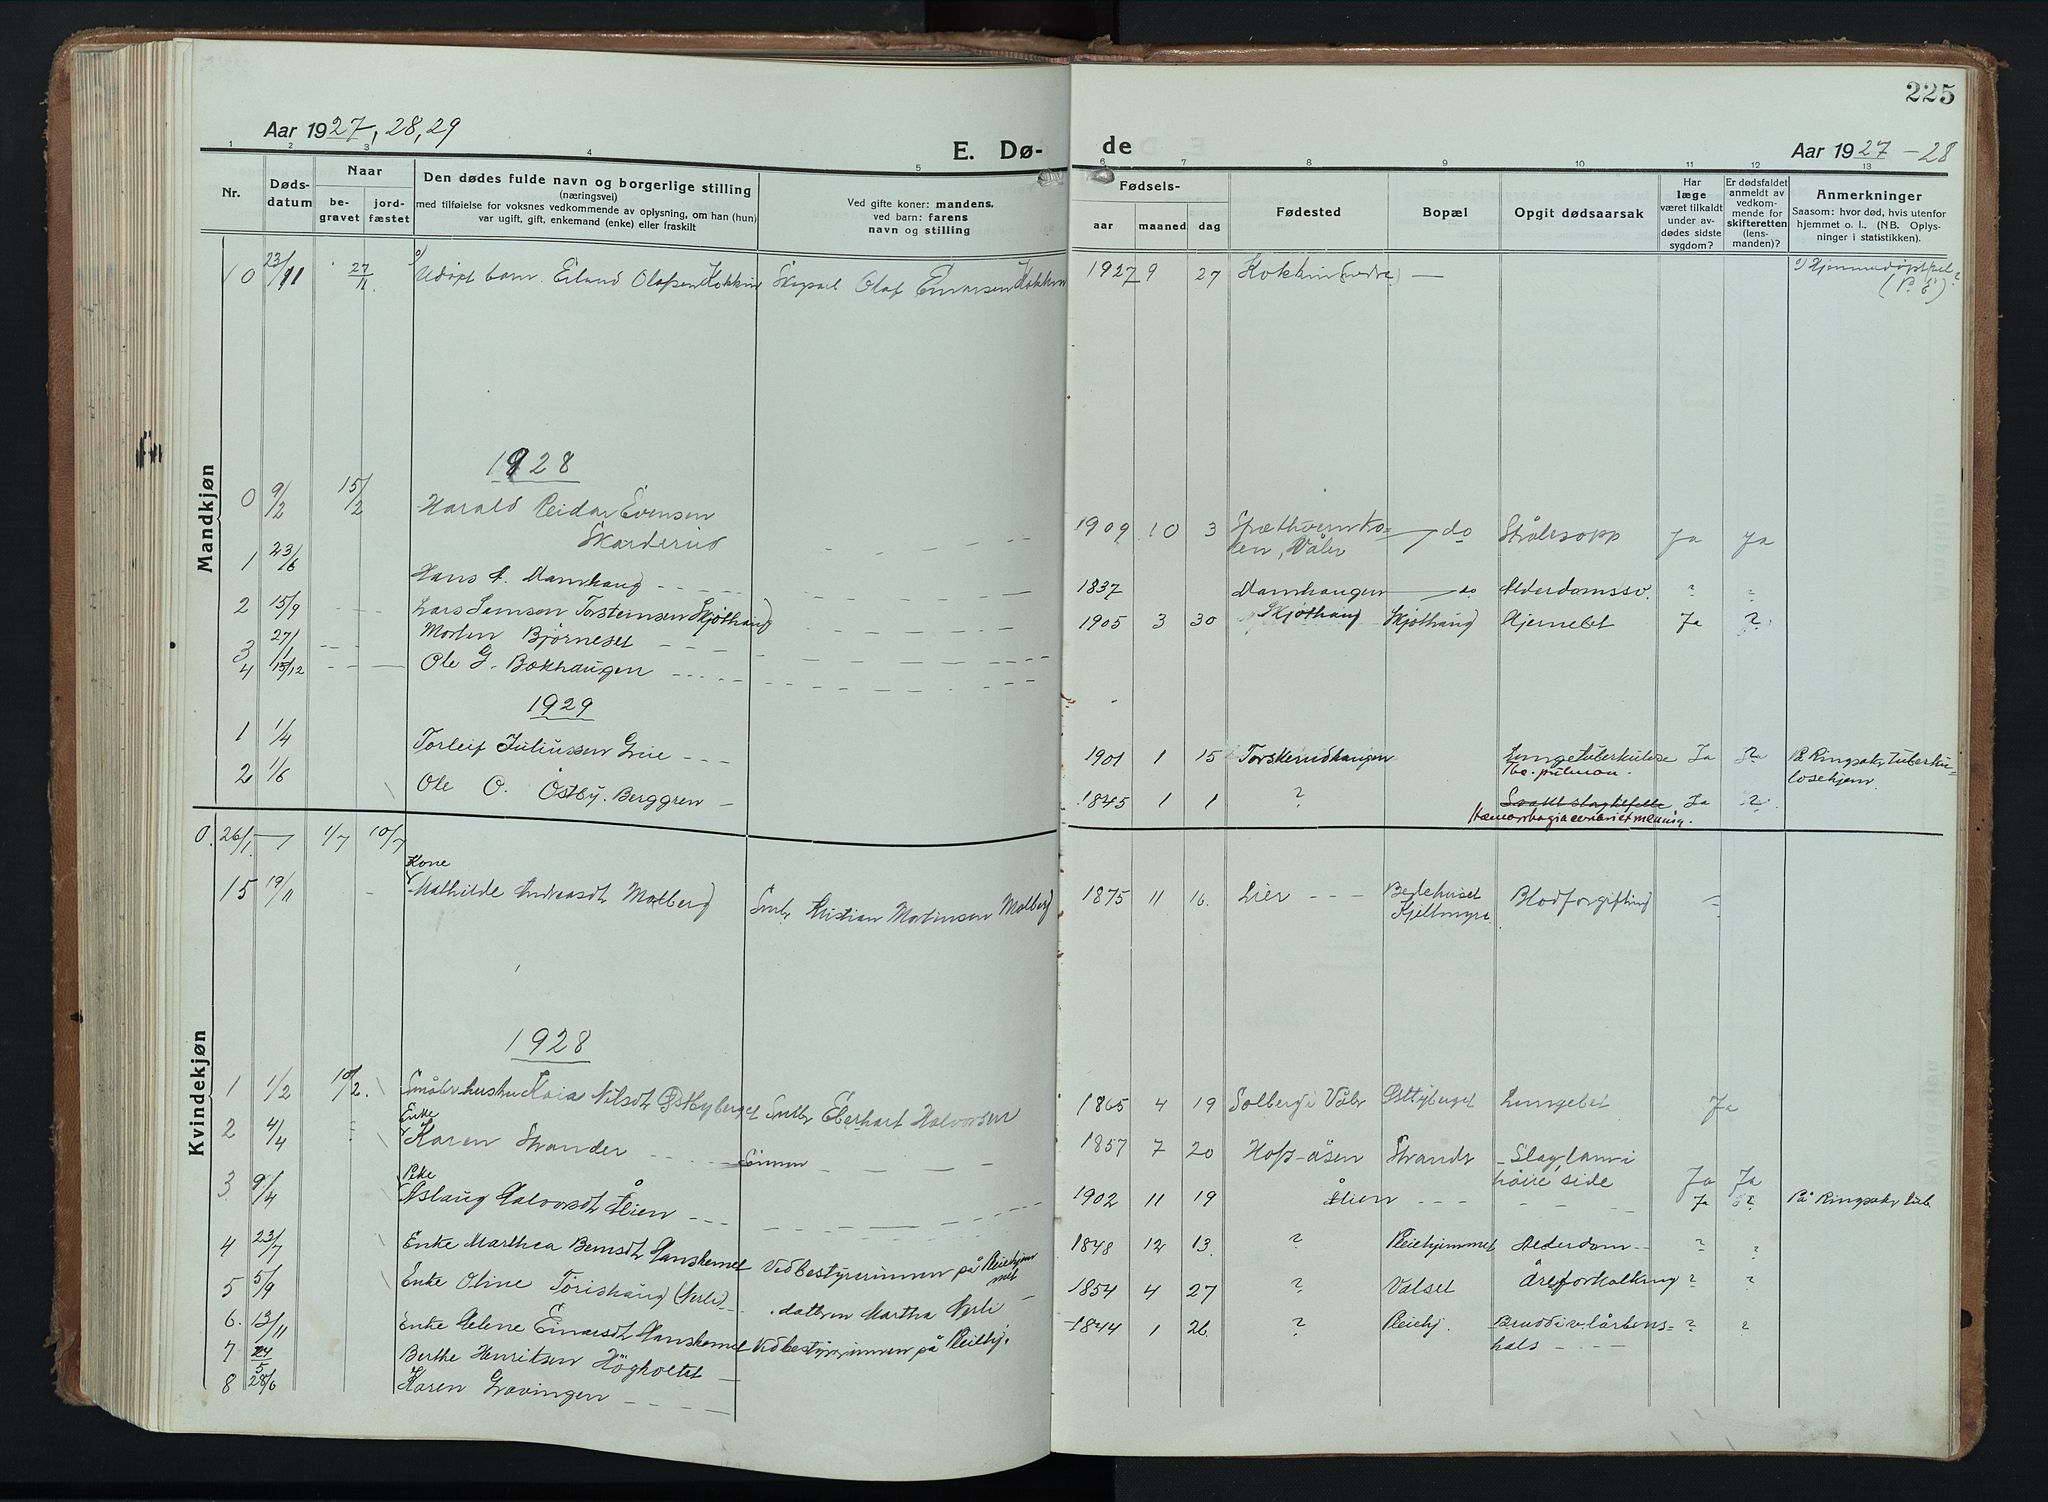 225
Aar 1927, 28, 29
E. Dø-
de
Aar 1927-28
1 2 3 4 5 6 7 8 9 10 11 12 13
Nr.
Døds-
datum
Naar
be-
gravet
jord-
fæstet
Den dødes fulde navn og borgerlige stilling
(næringsvei)
med tilføielse for voksnes vedkommende av oplysning, om han (hun)
var ugift, gift, enkemand (enke) eller fraskilt
Ved gifte koner: mandens.
ved barn: farens
navn og stilling
Fødsels-
aar maaned dag
Fødested
Bopæl
Opgit dødsaarsak
Har
læge
været tilkaldt
under av-
dødes sidste
sygdom?
Er dødsfaldet
anmeldt av
vedkom-
mende for
skifteretten
(lens-
manden)?
Anmerkninger
Saasom: hvor død, hvis utenfor
hjemmet o. l., (NB. Oplys-
ninger i statistikken).
Mandkjøn
10 23/11 27/11 Udøpt barn Eiland Olafsen Kokkin Olaf Einarsen Kokkin 1927 9 27 Kokkin
1928
0 9/2 15/2 Harald Reidar Evensen
Skarderud 1909 10 3 Våler do Strålesopp Ja ja
1 23/6 Hans A. Damhaug 1837 Damhaugen do Alderdomssv. ? ?
2 15/9 Lars Samson Torsteinsen Skjøthaug 1905 3 30 Skjøthaug Skjøthaug Hjernebet Ja ?
3 27/1 Morten Bjørneset
4 15/12 Ole G. Bakhaugen
1929
1 1/4 Torleif Juliussen Grue 1901 1 15 Torskerudhaugen Lungetuberkulose Ja På Ringsaker tuberku-
Tbc. pulmon. losehjem
2 1/6 Ole O. Østby. Berggren 1845 1 1 ? Ja ?
Kvindekjøn
0. 26/1 1/7 10/7
Kone
15 19/11 Mathilde Andreasdt Malberg Smbr Kristian Martinsen Malberg 1875 11 16. Lier Bedehuset Blodforgiftning
Kjeltmyra
1928
1 1/2 10/2. Småbr.hustru Kaia Nilsdt Østbyberget Smbr Eberhart Halvorsen 1865 4 19 Solberg i Våler Østbyberget Lungebet Ja
Enke
2 4/4 Karen Strander Sønnen 1857 7 20 Hof-åsen Strander Slag lam i
høire side Ja Ja
Pike
3 9/4 Aslaug Halvorsdt Ålien 1902 11 19 Ålien Ja ? På Ringsaker tub.
4 23/7 Enke Marthea Berntsdt Hanskemel Vedbestyrerinnen på Pleiehjem-
met 1848 12 13. ? Pleiehjemmet Alderdom ? ?
5 5/9 Enke Oline Torishaug (Nerli) datteren Martha Nerli 1854 4 27 ? Valset Åreforkalkning ? ?
6. 13/11 Enke Helene Einarsdt Hanskemel Vedbestyrerinnen på Pleiehj. 1844 1 26 ? Pleiehj. Brudd i v. lårbens- ? ?
hals
7 24/5 Berthe Henriksen Høgholtet
8 28/6 Karen Gravingen